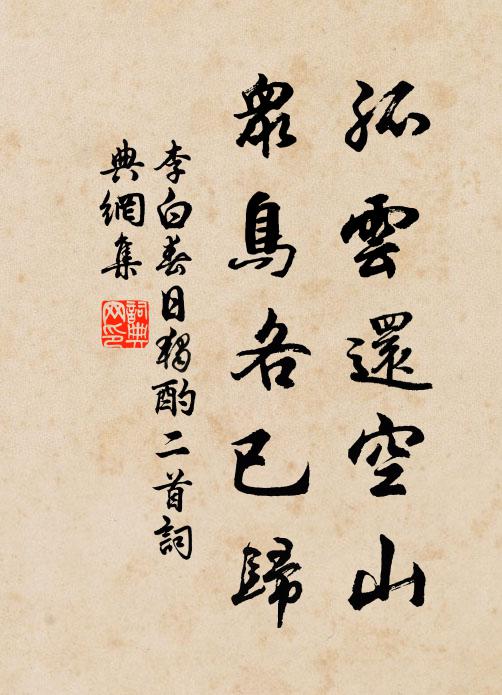 孤雲還空山
眾鳥各已歸
李白春日獨酌二首詞
典網集
詞典
网印